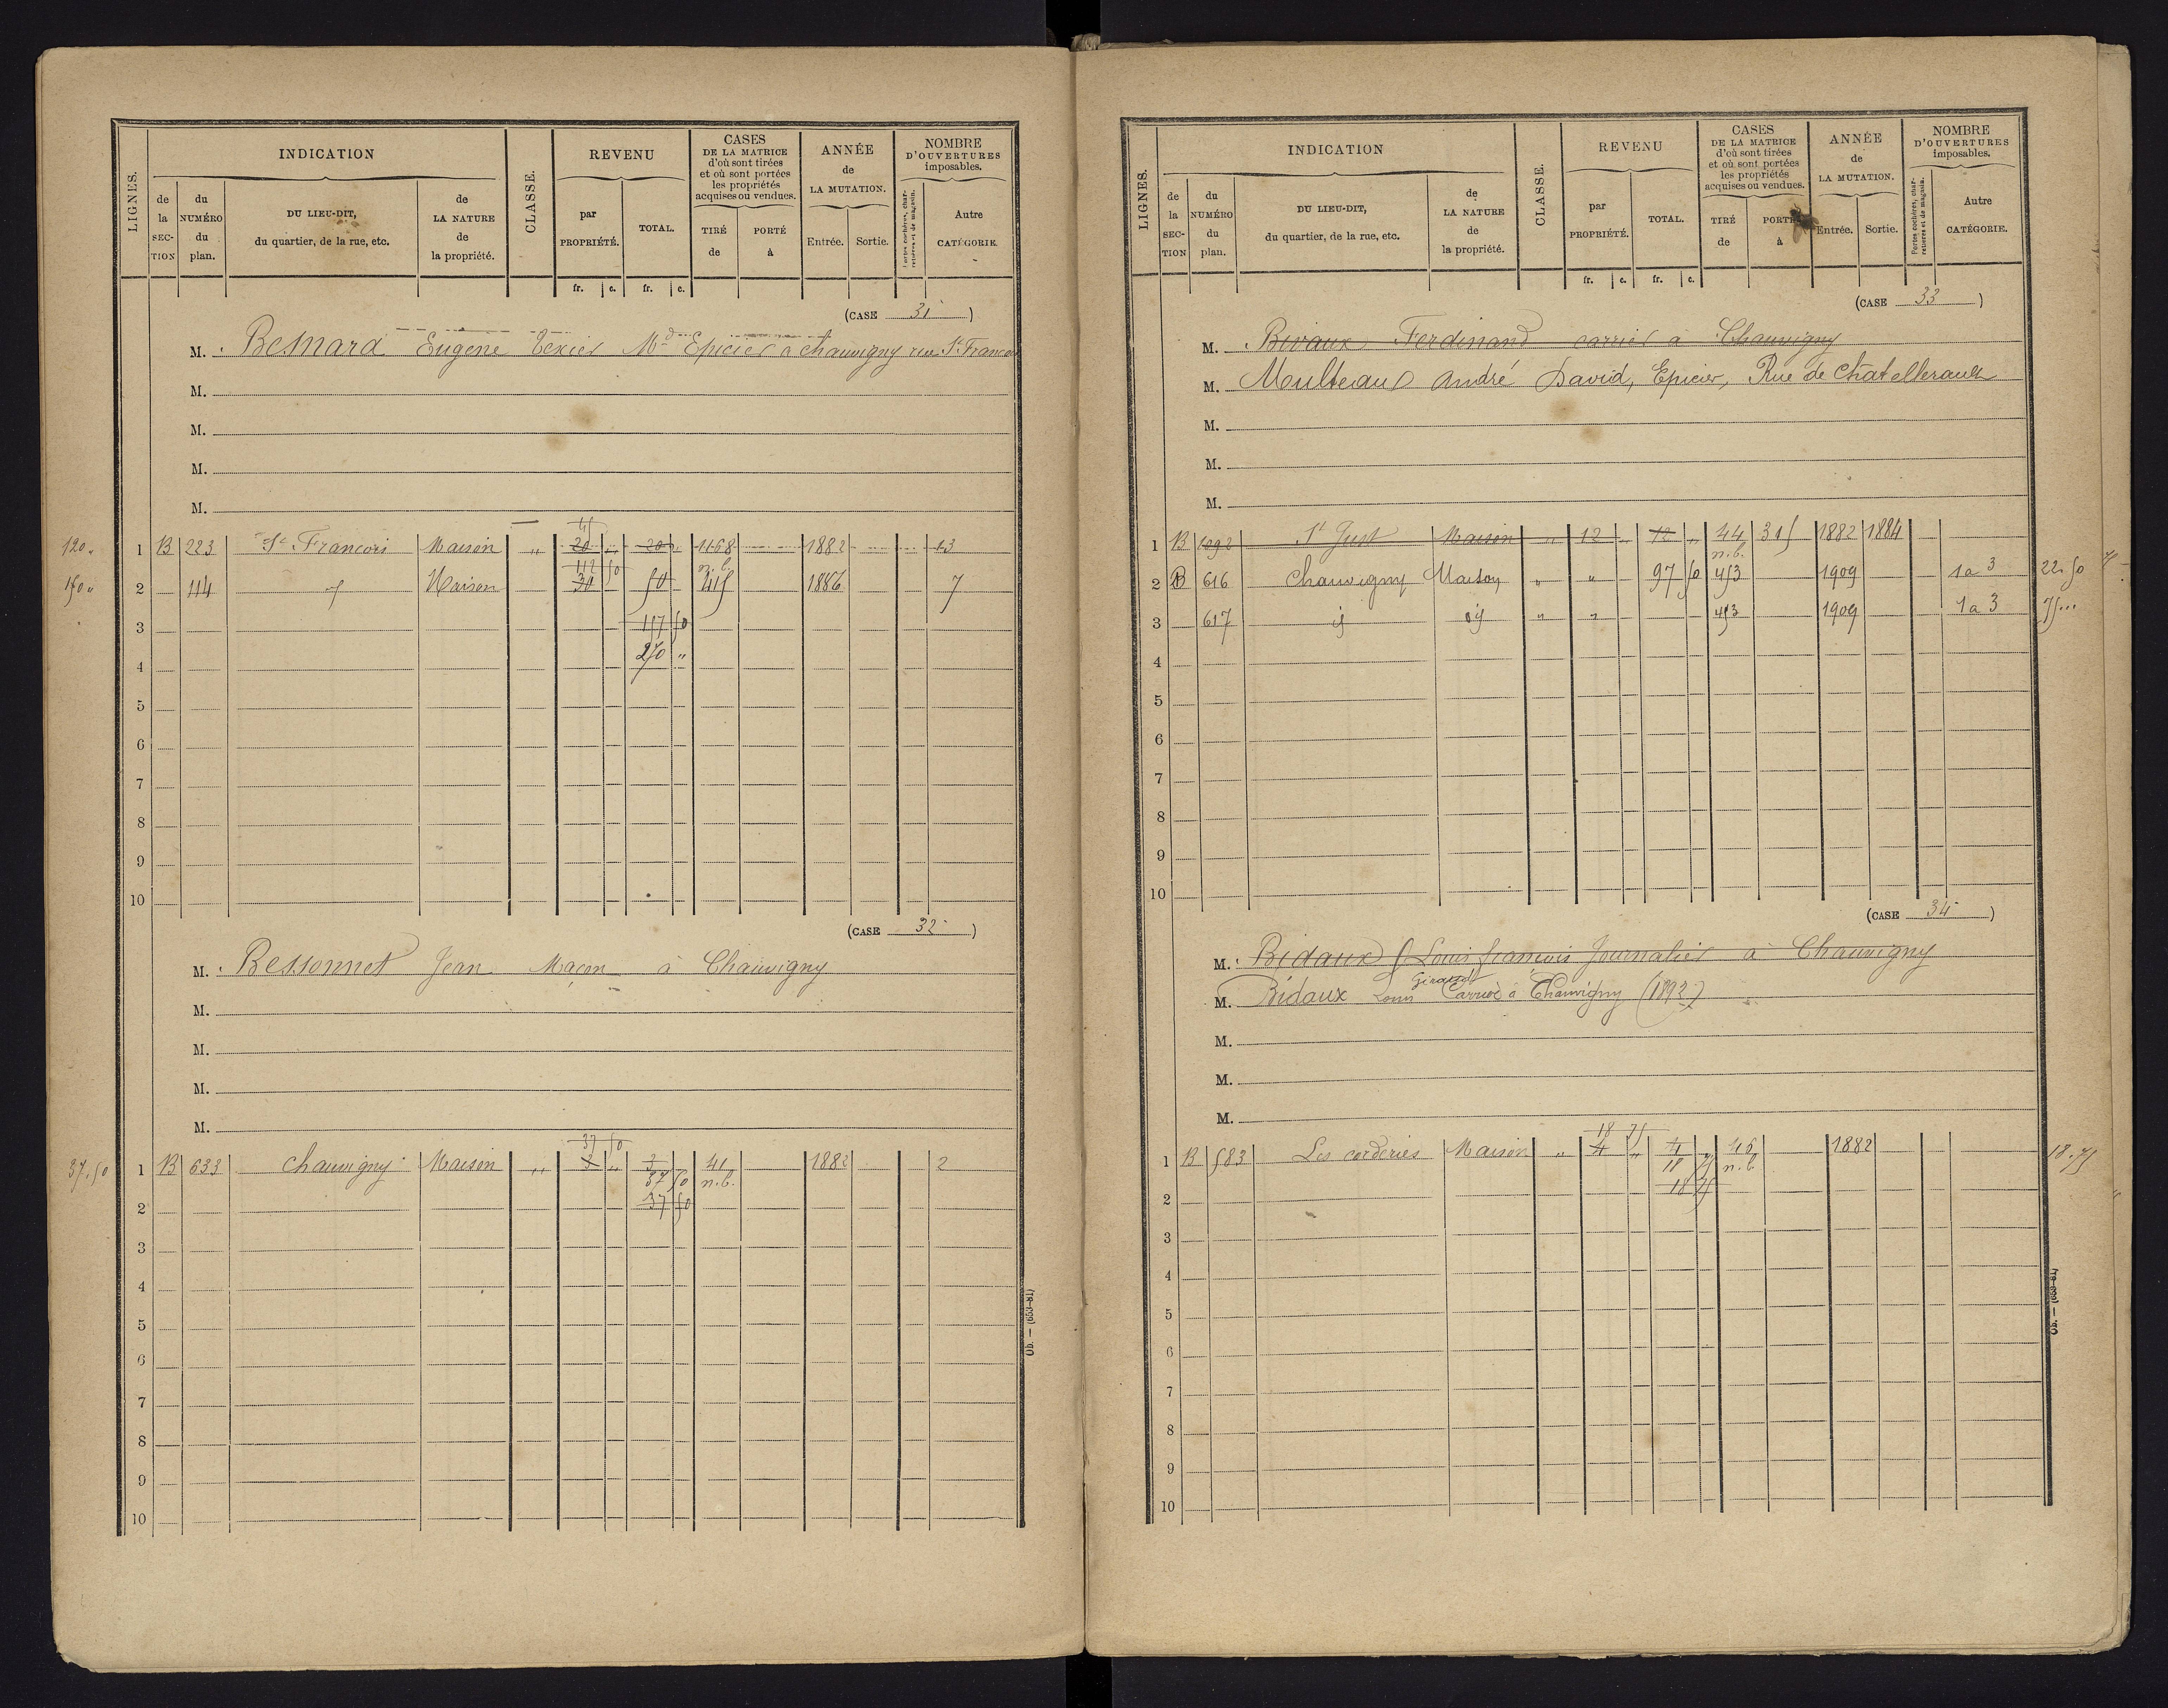 LIGNES.
INDICATION
de la SECTION
du NUMÉRO du plan.
DU LIEU-DIT, du quartier, de la rue, etc.
de LA NATURE de la propriété.
CLASSE.
REVENU
par PROPRIÉTÉ.
TOTAL.
fr. c. fr. c.
CASES DE LA MATRICE d'où sont tirées et où sont portées les propriétés acquises ou vendues.
TIRÉ de
PORTÉ à
ANNÉE de LA MUTATION.
Entrée. Sortie.
NOMBRE D'OUVERTURES imposables.
Portes cochères, charretières et de magasin.
Autre CATÉGORIE.
(CASE 31)
M. Besnard Eugène Texier Md Epicier a chauvigny rue St Francois
M.
M.
M.
M.
45
120 " 1 B 223 St Francois Maison " 20 " 20 " 1168 1882 13
112 50 n.b.
150 " 2 114 Maison 30 50 415 1886 7
3 157 50
4 270 "
5
6
7
8
9
10
(CASE 32)
M. Bessonnet Jean Maçon à Chauvigny
M.
M.
M.
M.
37 50
37.50 1 B 633 chauvigny Maison " 3 " 3 41 1882 2
37 50 n.b.
2 37 50
3
4
5
6
7
8
9
10
Ob. — (653-81)
LIGNES.
INDICATION
de la SECTION
du NUMÉRO du plan.
DU LIEU-DIT, du quartier, de la rue, etc.
de LA NATURE de la propriété.
CLASSE.
REVENU
par PROPRIÉTÉ.
TOTAL.
fr. c. fr. c.
CASES DE LA MATRICE d'où sont tirées et où sont portées les propriétés acquises ou vendues.
TIRÉ de
PORTÉ à
ANNÉE de LA MUTATION.
Entrée. Sortie.
NOMBRE D'OUVERTURES imposables.
Portes cochères, charretières et de magasin.
Autre CATÉGORIE.
(CASE 33)
M. Bivaux Ferdinand carrier a Chauvigny
M. Moulteau André David, Epicier, Rue de Châtellerault
M.
M.
M.
1 B 1092 St Just Maison " 12 " 12 " 44 315 1882 1884
n.b.
2 B 616 chauvigny Maison " " 97 50 453 1909 1 a 3 22.50
3 617 " " 453 1909 1 a 3 75...
4
5
6
7
8
9
10
(CASE 34)
M. Bidaux Louis francois Journalier à Chauvigny
Giraud
M. Bidaux Louis Carrier à Chauvigny (1892)
M.
M.
M.
18 75
1 B 583 Les corderies Maison " 4 " 4 " 46 1882 18.75
18 75 n.b.
2 18 75
3
4
5
6
7
8
9
10
Ob. — (653-81)